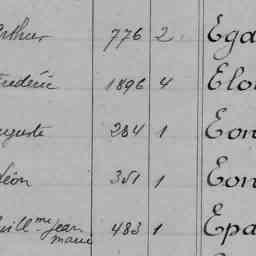 Arthur 776 2 Ega
Frédéric 1896 4 Elo
Auguste 284 1 Eon
Léon 351 1 Eon
Guill.me Jean 483 1 Epa
marie